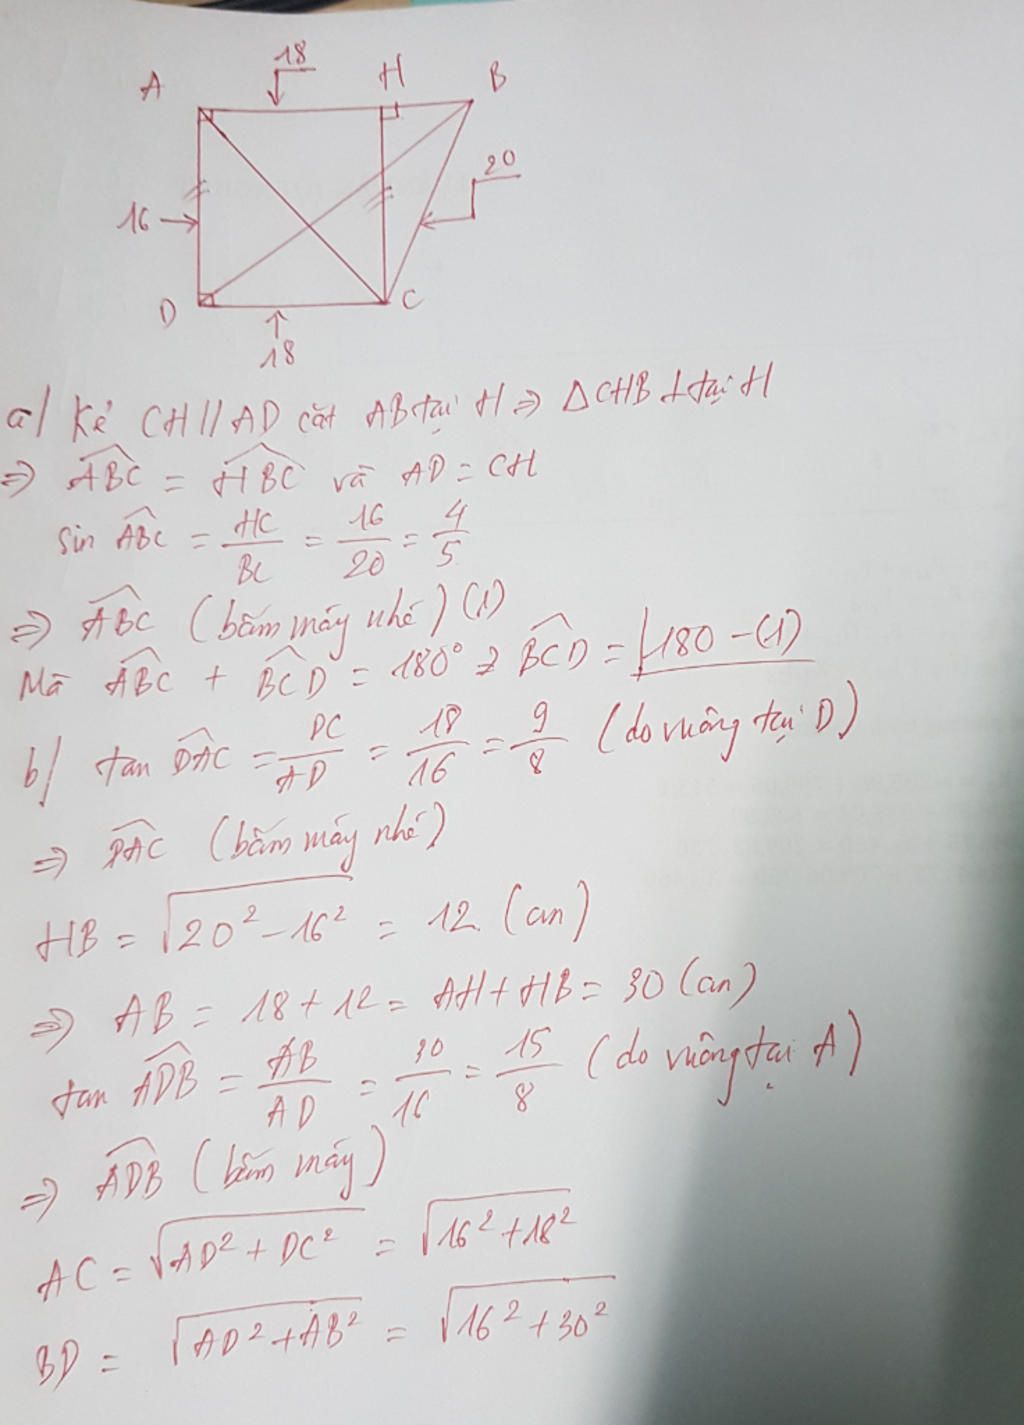 18
A H B
20
16
D C
18
a/ Kẻ CH // AD cắt AB tại H ⇒ ΔCHB ⊥ tại H
⇒ \widehat{ABC} = \widehat{HBC} và AD = CH
Sin \widehat{ABC} = HC/BC = 16/20 = 4/5
⇒ \widehat{ABC} (bấm máy nhé) (1)
Mà \widehat{ABC} + \widehat{BCD} = 180° ⇒ \widehat{BCD} = 180 - (1)
b/ tan \widehat{DAC} = DC/AD = 18/16 = 9/8 (do vuông tại D)
⇒ \widehat{DAC} (bấm máy nhé)
HB = √(20² - 16²) = 12 (cm)
⇒ AB = 18 + 12 = AH + HB = 30 (cm)
tan \widehat{ADB} = AB/AD = 30/16 = 15/8 (do vuông tại A)
⇒ \widehat{ADB} (bấm máy)
AC = √(AD² + DC²) = √(16² + 18²)
BD = √(AD² + AB²) = √(16² + 30²)